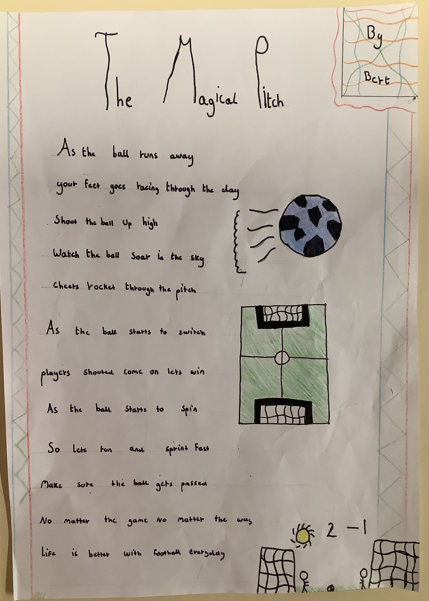 The Magical Pitch
By
Bert
As the ball runs away
your feet goes racing through the day
Shoot the ball up high
Watch the ball Soar in the sky
cheers rocket through the pitch
As the ball starts to switch
players shouted come on lets win
As the ball starts to spin
So lets run and sprint fast
Make sure the ball gets passed
No matter the game No matter the way
Life is better with football everyday
2-1